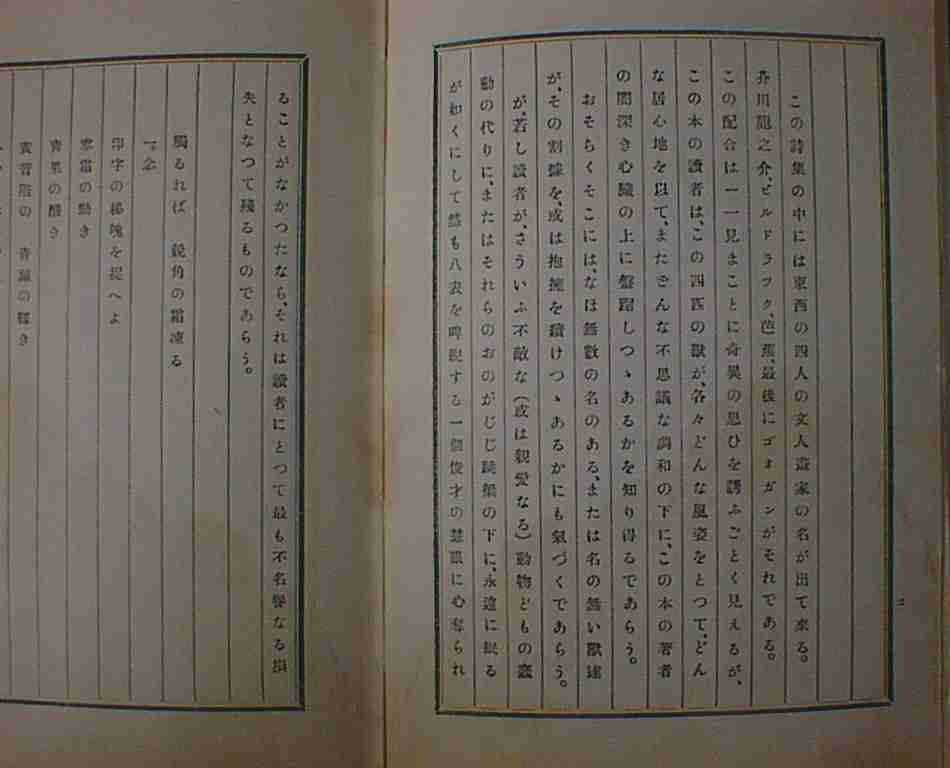 この詩集の中には東西の四人の文人畫家の名が出て來る。
芥川龍之介、ビルドラツク、芭蕉、最後にゴオガンがそれである。
この配合は一一見まことに奇異の思ひを誘ふごとく見えるが、
この本の讀者は、この四匹の獸が、各々どんな風姿をとつて、どん
な居心地を以て、またどんな不思議な調和の下に、この本の著者
の闇深き心臟の上に盤踞しつゝあるかを知り得るであらう。
おそらくそこには、なほ無數の名のある、または名の無い獸達
が、その割據を、或は抱擁を續けつゝあるかにも氣づくであらう。
が、若し讀者が、さういふ不敵な(或は親愛なる)動物どもの蠢
動の代りに、またはそれらのおのがじし跳梁の下に、永遠に眠る
が如くにして然も八表を睥睨する一個俊才の慧眼に心奪られ
ることがなかつたなら、それは讀者にとつて最も不名譽なる損
失となつて殘るものであらう。
觸るれば 鋭角の霜凍る
一念
印字の 魂を捉へよ
の動き
青果の
の 青 の